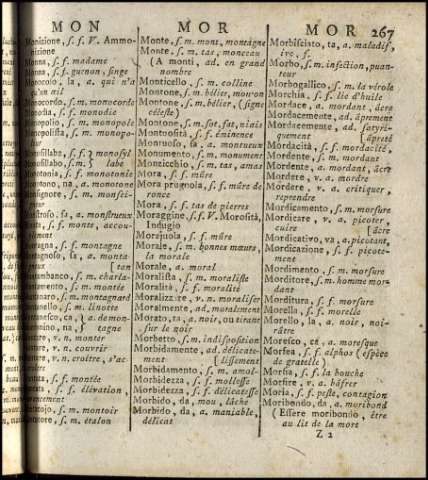 MON
MOR
MOR 267
Monizione, s. f. V. Ammo-
nizione
Monna, s. f. madame
Monna, s. f. guenon, singe
Monocolo, la, a. qui n'a
qu'un œil
Monocordo, s. m. monocorde
Monodia, s. f. monodie
Monopolio, s. m. monopole
Monopolista, s. m. monopo-
leur
Monosillabo, s. f. monosyl
labe
Monotonia, s. f. monotonie
Monotono, na, a. monotone
Monsignore, s. m. monsei-
gneur
Mostroso, sa, a. monstrueux
s. f. monte, accou-
plement
Montagna, s. f. montagne
Montagnoso, sa, a. monta-
Montambanco, s. m. charla-
tan
Montamento, s. m. montée
s. m. montagnard
s. m. linotte
ca, a. demon-
na, tagne
v. n. monter
v. n. couvrir
v. n. croître, s'ac-
s. f. montée
s. f. élévation,
Montatojo, s. m. montoir
Montatore, s. m. étalon
Monte, s. m. mont, montagne
Monte, s. m. tas, monceau
(A monti, ad. en grand
nombre
Monticello, s. m. colline
Montone, s. m. bélier, mouton
Montone, s. m. bélier, (signe
céleste)
Montone, s. m. sot, fat, niais
Montuosità, s. f. éminence
Montuoso, sa, a. montueux
Monumento, s. m. monument
Monticchio, s. m. tas, amas
Mora, s. f. mûre
Mora prugnola, s. f. mûre de
ronce
Mora, s. f. tas de pierres
Moraggine, s. f. V. Morosità,
Indugio
Morajuola, s. f. mûre
Morale, s. m. bonnes mœurs,
la morale
Morale, a. moral
Moralista, s. m. moraliste
Moralità, s. f. moralité
Moralizzare, v. n. moraliser
Moralmente, ad. moralement
Morato, ta, a. noir, ou tirant
sur le noir
Morbetto, s. m. indisposition
Morbidamente, ad. délicate-
[dissement
Morbidamento, s. m. amol-
Morbidezza, s. f. mollesse
Morbidezza, s. f. délicatesse
Morbido, da, mou, lâche
Morbido, da, a. maniable,
délicat
Morbisciato, ta, a. maladif,
ive, f.
Morbo, s. m. infection, puan-
teur
Morbogallico, s. m. la vérole
Morchia, s. f. lie d'huile
Mordace, a. mordant, âcre
Mordacemente, ad. âprement
Mordacemente, ad. satyri-
quement [âpreté
Mordacità, s. f. mordacité,
Mordente, s. m. mordant
Mordente, a. mordant, âcre
Mordere, v. a. mordre
Mordere, v. a. critiquer,
reprendre
Mordicamento, s. m. morsure
Mordicare, v. a. picoter,
cuire [âcre
Mordicativo, va, a. picotant,
Mordicazione, s. f. picote-
ment
Mordimento, s. m. morsure
Morditore, s. m. homme mor-
dant
Morditura, s. f. morsure
Morella, s. f. morelle
Morello, la, a. noir, noi-
râtre
Moresco, ca, a. moresque
Morfea, s. f. alphos (espèce
de gratelle)
Morfia, s. f. la bouche
Morfire, v. a. bâfrer
Moria, s. f. peste, contagion
Moribondo, da, a. moribond
(Essere moribondo, être
au lit de la mort
Z 2